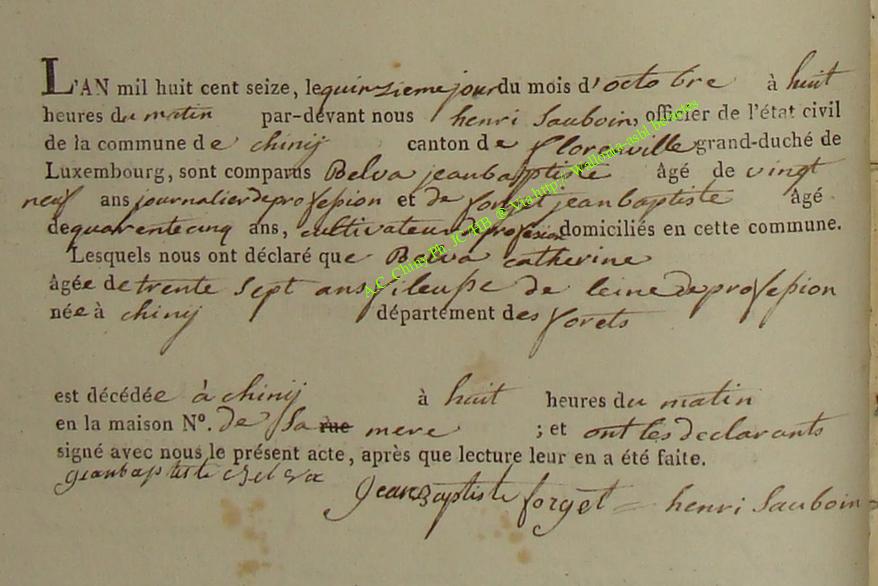 L'AN mil huit cent seize, le quinzieme jour du mois d'octobre à huit
heures du matin par-devant nous henri Sauboin, officier de l'état civil
de la commune de chinij canton de florenville grand-duché de
Luxembourg, sont comparus Belva jeanbaptiste âgé de vingt
neuf ans journalier de profession et de forget jeanbaptiste âgé
de quarente cinq ans, cultivateur de profession domiciliés en cette commune.
Lesquels nous ont déclaré que Belva catherine
âgée de trente sept ans fileusse de leine de profession
née à chinij département des forets
est décédée à chinij à huit heures du matin
en la maison N°. de Sa rue mere ; et ont les declarants
signé avec nous le présent acte, après que lecture leur en a été faite.
jeanbaptiste Belva
Jean Baptiste forget henri Sauboin
A.C. Chiny Ph. JC HB @ Via http://wallonia-asbl.be